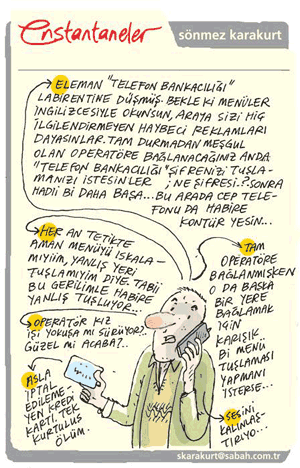 Enstantaneler
sönmez karakurt
ELEMAN "TELEFON BANKACILIĞI"
LABİRENTİNE DÜŞMÜŞ. BEKLE Kİ MENÜLER
İNGİLİZCESİYLE OKUNSUN, ARAYA SİZİ HİÇ
İLGİLENDİRMEYEN HAYBECİ REKLAMLARI
DAYASINLAR. TAM DURMADAN MEŞGUL
OLAN OPERATÖRE BAĞLANACAĞINIZ ANDA
"TELEFON BANKACILIĞI" ŞİFRENİZİ TUŞLA-
MANIZI İSTESİNLER ; NE ŞİFRESİ.? SONRA
HADİİ Bİ DAHA BAŞA... BU ARADA CEP TELE-
FONU DA HABİRE
KONTÜR YESİN...
HER AN TETİKTE
AMAN MENÜYÜ ISKALA-
MIYIİM, YANLIŞ YERİ
TUŞLAMIYIM DİYE. TABİİ
BU GERİLİMLE HABİRE
YANLIŞ TUŞLUYOR..
OPERATÖR KIZ
İŞİ YOKUŞA MI SÜRÜYOR?.
GÜZEL Mİ ACABA?..
ASLA
İPTAL
EDİLEME-
YEN KREDİ
KARTI. TEK
KURTULUŞ
ÖLÜM.
TAM
OPERATÖRE
BAĞLANMIŞKEN
O DA BAŞKA
BİR YERE
BAĞLAMAK
İÇİN
KARIŞIK
Bİ MENÜ
TUŞLAMASI
YAPMANI
İSTERSE...
SESİNİ
KALINLAŞ-
TIRIYO...
skarakurt@sabah.com.tr